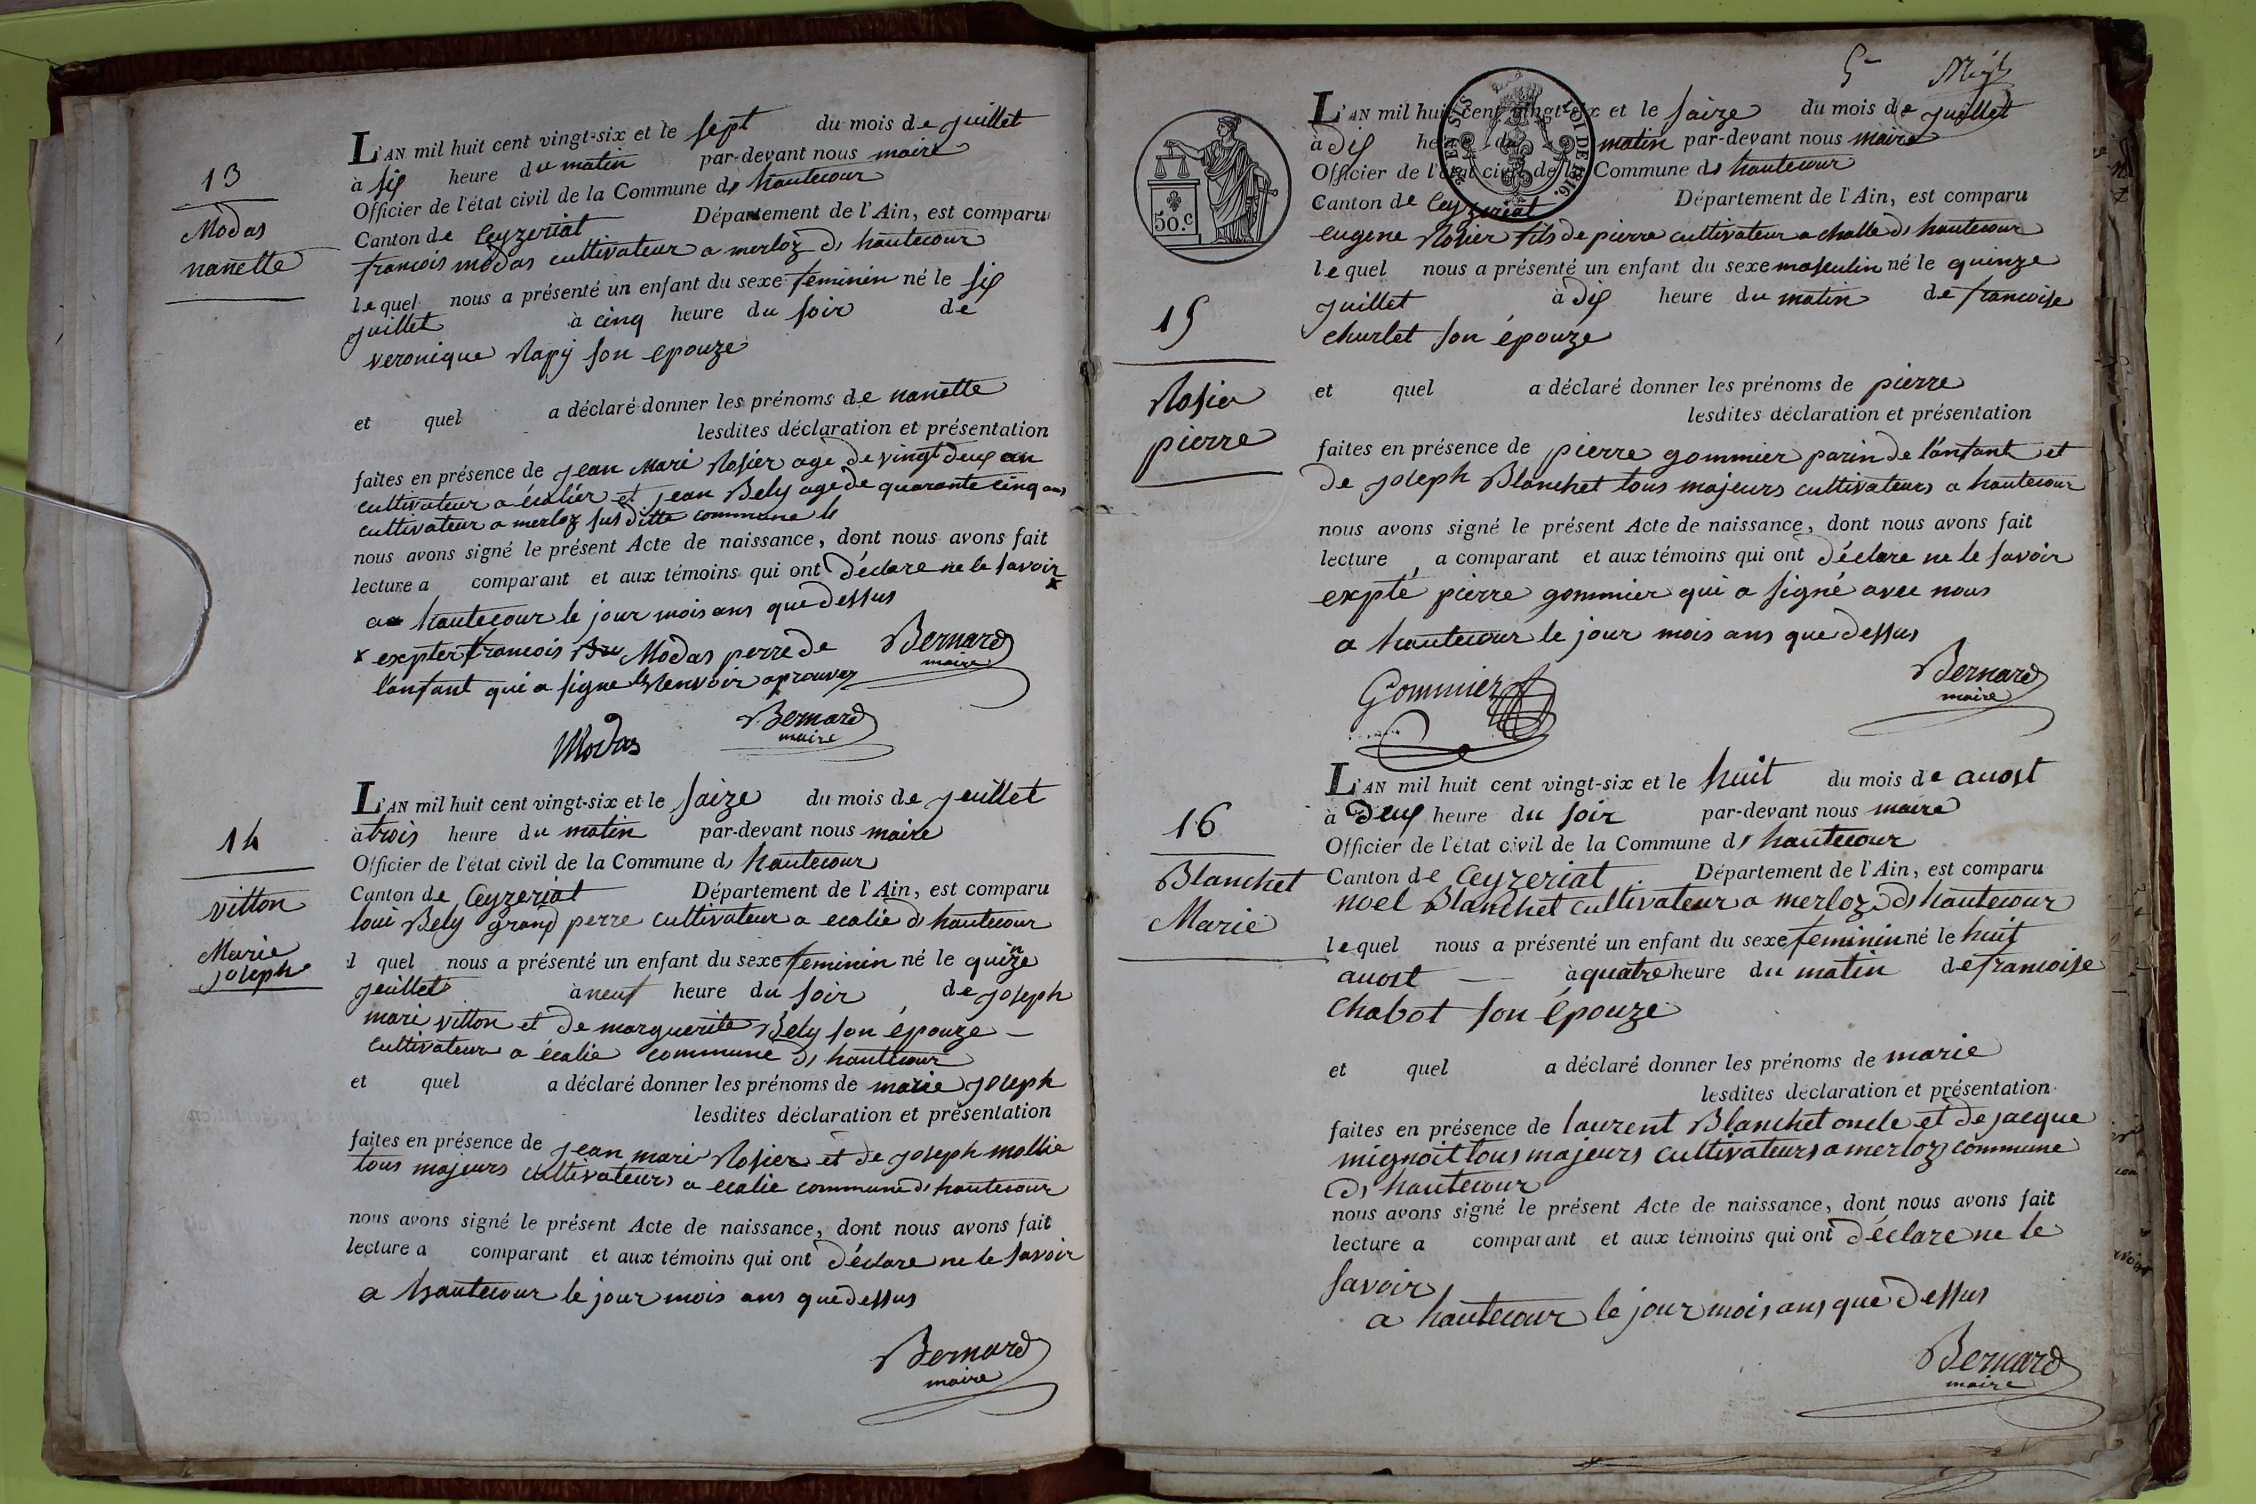 13
Modas
nanette
L'AN mil huit cent vingt-six et le sept du mois de juillet
à six heure du matin par-devant nous maire
Officier de l'état civil de la Commune de hautecour
Canton de Ceyzeriat Département de l'Ain, est comparu
francois modas cultivateur a merloz de hautecour
lequel nous a présenté un enfant du sexe feminin né le six
juillet à cinq heure du soir de
veronique Rapy son epouze
et quel a déclaré donner les prénoms de nanette
lesdites déclaration et présentation
faites en présence de jean mari Rosier age de vingt deux an
cultivateur a écalier et jean Bely age de quarante cinq ans
cultivateur a merloz susditte commune
nous avons signé le présent Acte de naissance, dont nous avons fait
lecture a comparant et aux témoins qui ont déclare ne le savoir x
a hautecour le jour mois ans que dessus
x expter francois Modas perre de
l'anfant qui a signe le Renvoir aprouver
Bernard
maire
Modas
Bernard
maire
14
vitton
Marie
joseph
L'AN mil huit cent vingt-six et le saize du mois de juillet
à trois heure du matin par-devant nous maire
Officier de l'état civil de la Commune de hautecour
Canton de Ceyzeriat Département de l'Ain, est comparu
loui Bely grand perre cultivateur a ecalie de hautecour
l quel nous a présenté un enfant du sexe feminin né le quinze
juillet à neuf heure du soir de joseph
mari vitton et de marguerite Bely son épouze
cultivateur a écalie commune de hautecour
et quel a déclaré donner les prénoms de marie joseph
lesdites déclaration et présentation
faites en présence de jean mari Rosier et de joseph mollie
tous majeurs cultivateurs a ecalie commune de hautecour
nous avons signé le présent Acte de naissance, dont nous avons fait
lecture a comparant et aux témoins qui ont déclare ne le savoir
a hautecour le jour mois ans que dessus
Bernard
maire
5
50.c
LOI DE 1816.
15
Rosier
pierre
L'AN mil huit cent vingt-six et le saize du mois de juillet
à dix heure du matin par-devant nous maire
Officier de l'état civil de la Commune de hautecour
Canton de Ceyzeriat Département de l'Ain, est comparu
eugene Rosier fils de pierre cultivateur a challe de hautecour
lequel nous a présenté un enfant du sexe masculin né le quinze
juillet à dix heure du matin de francoise
churlet son épouze
et quel a déclaré donner les prénoms de pierre
lesdites déclaration et présentation
faites en présence de pierre gommier parin de l'anfant et
de joseph Blanchet tous majeurs cultivateurs a hautecour
nous avons signé le présent Acte de naissance, dont nous avons fait
lecture, a comparant et aux témoins qui ont déclare ne le savoir
expté pierre gommier qui a signé avec nous
a hautecour le jour mois ans que dessus
Gommier
Bernard
maire
16
Blanchet
Marie
L'AN mil huit cent vingt-six et le huit du mois de auost
à deux heure du soir par-devant nous maire
Officier de l'état civil de la Commune de hautecour
Canton de Ceyzeriat Département de l'Ain, est comparu
noel Blanchet cultivateur a merloz de hautecour
lequel nous a présenté un enfant du sexe feminin né le huit
auost à quatre heure du matin de francoise
Chabot son épouze
et quel a déclaré donner les prénoms de marie
lesdites déclaration et présentation
faites en présence de laurent Blanchet oncle et de jacque
mignoit tous majeurs cultivateurs a merloz commune
de hautecour
nous avons signé le présent Acte de naissance, dont nous avons fait
lecture a comparant et aux témoins qui ont déclare ne le
savoir
a hautecour le jour mois ans que dessus
Bernard
maire